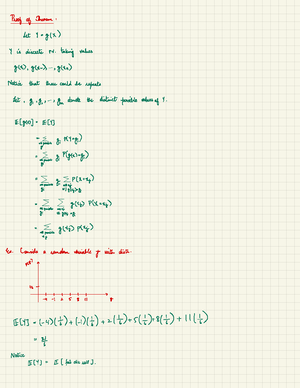 Proof of Theorem.
Let Y = g(X)
Y is discrete r.v. taking values
g(x₁), g(x₂), ..., g(xₙ)
Notice that there could be repeats
Let y₁, y₂, ..., yₘ denote the distinct possible values of Y.
E[g(X)] = E[Y]
= Σ yᵢ P(Y=yᵢ)
= Σ yᵢ P(g(X)=yᵢ)
= Σ yᵢ Σ P(X=xⱼ)
= Σ Σ g(xⱼ) P(X=xⱼ)
= Σ g(xⱼ) P(xⱼ)
Ex. Consider a random variable Y with distr.
-4 -1 2 5 8 11 y
E[Y] = (-4)(1/6) + (-1)(1/6) + 2(1/6) + 5(1/6) + 8(1/6) + 11(1/6)
= 21/6
Notice
E[Y] =